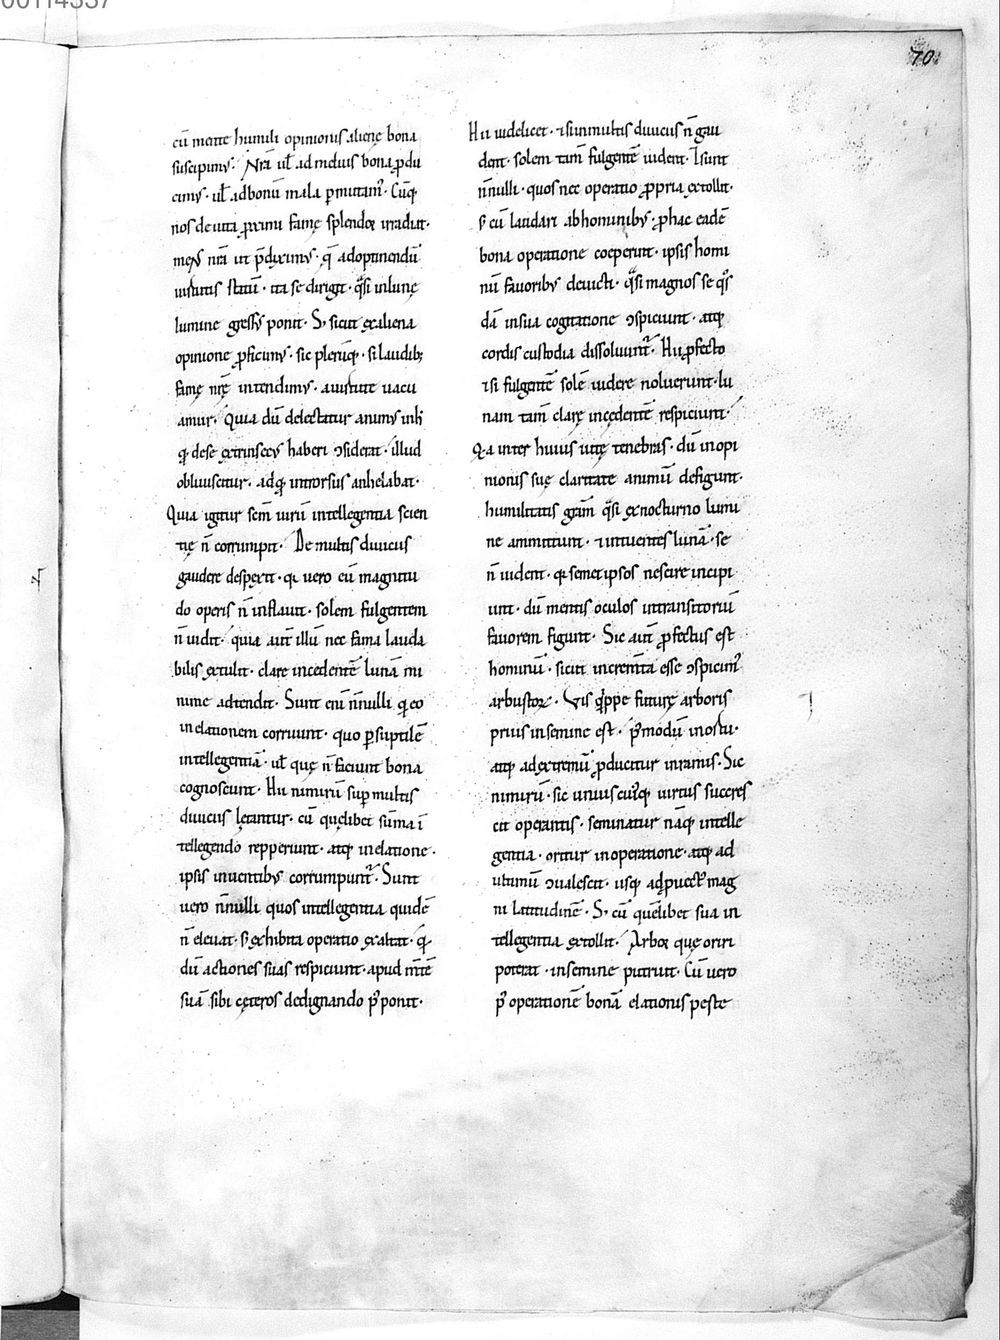 00114337
70
cū mente humili opinionis alienę bona
suscipimꝰ. Nrā ul̄ ad melius bona ꝓdu
cimꝰ · ul̄ ad bonū mala ꝑmutamꝰ. Cūq;
nos de uita ꝓximi famę splendor irradiat·
mens nrā ut p̄diximꝰ · q̄ ad optinendū
uirtutis statū · ita se dirigit · qͣsi in lunę
lumine gressꝰ ponit. Sꝫ sicut ex aliena
opinione ꝓficimꝰ · sic plerūq; · si laudibꝫ
famę nrę̄ intendimꝰ · a uirtute uacu
amur. Quia dū delectatur animꝰ in h̄
qđ de se extrinsecꝰ haberi ↄsiderat · illud
obliuiscitur · ad qđ introrsus anhelabat·
Quia igitur sc̄m uirū intellegentia scien
tię n̄ corrumpit · De multis diuiciis
gaudere despexit · qͥ uero eū magnitu
do operis n̄ inflauit · solem fulgentem
n̄ uidit · quia aut̄ illū nec fama lauda
bilis extulit · clare incedentē lunā mi
nime adtendit. Sunt eni n̄nulli qͥ eo
in elationem corruunt · quo ꝑ suptilē
intellegentiā · ul̄ quę n̄ faciunt bona
cognoscunt. Hii nimirū suꝑ multis
diuiciis lętantur · cū quęlibet sūma ī
tellegendo repperiunt · atq; in elatione ·
ipsis inuentibꝰ corrumpunt̃. Sunt
uero n̄nulli quos intellegentia quidē
n̄ eleuat · sꝫ exhibita operatio exaltat · qͥ
dū actiones suas respiciunt · apud m̄tē
suā sibi cęteros dedignando p̄ponit·
Hii uidelicet · ⁊ si in multis diuiciis n̄ gau
dent · solem tam̄ fulgentē uident. Ī sunt
n̄nulli · quos nec operatio ꝓpria extollit·
sꝫ cū laudari ab hominibꝰ · ꝓ hac eadē
bona operatione coeperint · ipsis homi
nū fauoribꝰ deuicti · qͣsi magnos se qͦs
dā in sua cogitatione ↄspiciunt · atq;
cordis custodia dissoluunt̃. Hii ꝓfecto
⁊ si fulgentē solē uidere noluerunt · lu
nam tam̄ clarę incędentē respiciunt·
Qͥa inter huius uitę tenebras · dū in opi
nionis suę claritate animū defigunt·
humilitatis grām qͣsi ex nocturno lumi
ne ammittunt · ⁊ intuentes lunā · se
n̄ uident · qͥ semet ipsos nescire incipi
unt · dū mentis oculos in transitoriū
fauorem figunt. Sic aut̄ ꝓfectus est
hominū · sicut increm̄ta esse ↄspicimꝰ
arbustoꝝ · Vis qͥppe futurę arboris
prius in semine est · p̄modū in ortu·
atq; ad extremū ꝓducitur in ramis. Sic
nimirū · sic uniuscuiꝰq; uirtus succres
cit operantis · seminatur nāq; intelle
gentia · oritur in operatione · atq; ad
ultimū ↄualescit · usq; ad ꝓuectꝰ mag
ni latitudinē. Sꝫ cū quēlibet sua in
tellegentia extollit. Arbor que oriri
poterat · in semine putruit. Cū uero
p̄ operationē bonā elationis peste